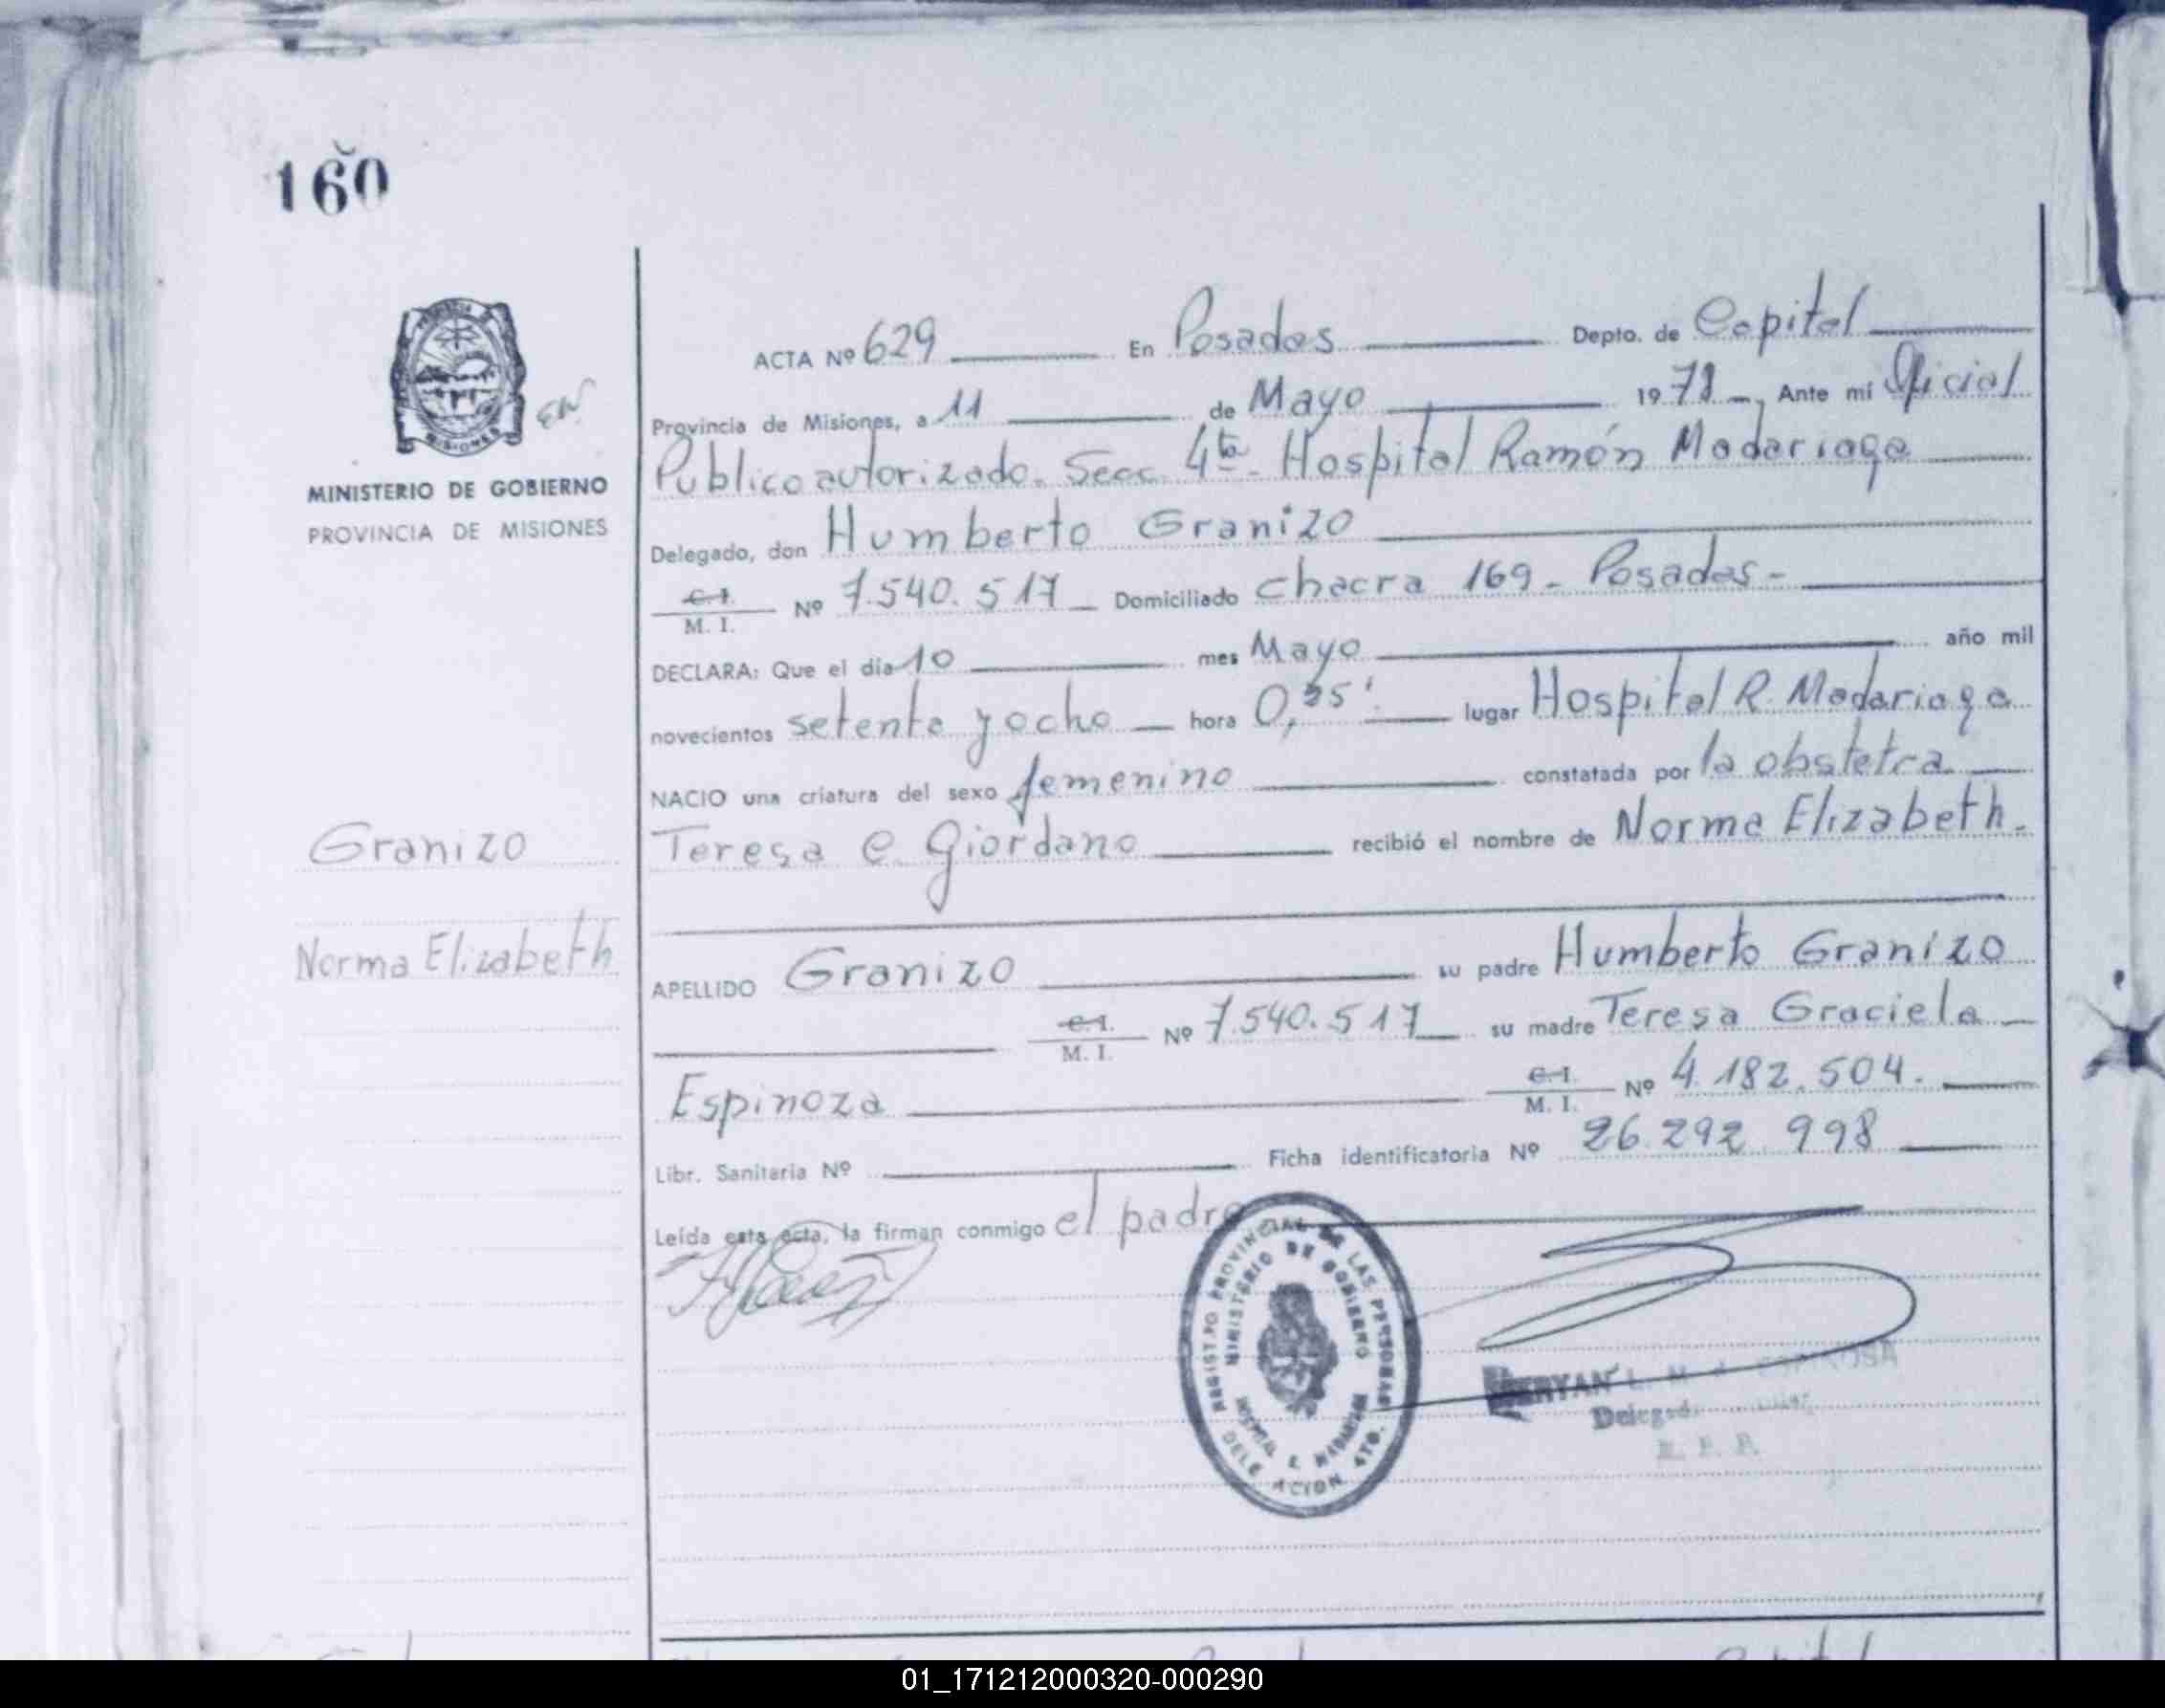 160
MINISTERIO DE GOBIERNO
PROVINCIA DE MISIONES
Granizo
Norma Elizabeth
ACTA Nº 629 En Posadas Depto. de Capital
Provincia de Misiones, a 11 de Mayo 1978 Ante mí Oficial
Publico autorizado. Secc. 4ta - Hospital Ramón Madariaga
Delegado, don Humberto Granizo
C.I. M. I. Nº 7.540.517 Domiciliado chacra 169 - Posadas -
DECLARA: Que el día 10 mes Mayo año mil
novecientos setenta y ocho hora 0, lugar Hospital R. Madariaga
NACIO una criatura del sexo femenino constatada por la obstetra
Teresa e Giordano recibió el nombre de Norma Elizabeth.
APELLIDO Granizo su padre Humberto Granizo
C.I. M. I. Nº 7.540.517 su madre Teresa Graciela
Espinoza C.I. M. I. Nº 4.182.504.
Libr. Sanitaria Nº Ficha identificatoria Nº 26.292.998
Leída esta acta, la firman conmigo el padre
REGISTRO PROVINCIAL DE LAS PERSONAS
MINISTERIO DE GOBIERNO
HOSPITAL R. MADARIAGA
DELEGACION 4TO.
01_171212000320-000290